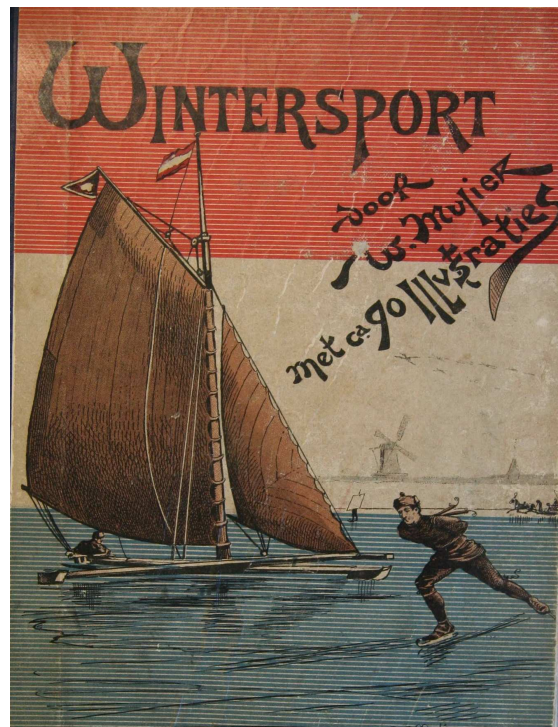 WINTERSPORT
door
W. Mulier
met ca. 90 Illustraties